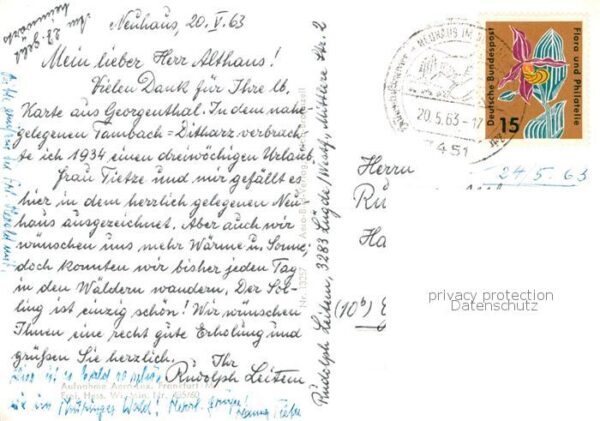 Neuhaus, 20. V. 63
Mein lieber Herr Althaus!
Vielen Dank für Ihre lb.
Karte aus Georgenthal. In dem nahe
gelegenen Tambach-Ditharz verbrach-
te ich 1934 einen dreiwöchigen Urlaub.
Frau Tietze und mir gefällt es
hier in dem herrlich gelegenen Neu-
haus ausgezeichnet. Aber auch wir
wünschen uns mehr Wärme u. Sonne,
doch konnten wir bisher jeden Tag
in den Wäldern wandern. Der Sol-
ling ist einzig schön! Wir wünschen
Ihnen eine recht gute Erholung und
grüßen Sie herzlich. Ihr
Rudolph Leitem
Hier ist es bald so schön
wie im Thüringer Wald! Herzl. Grüße!
Am 23. geht
heimwärts
Aufnahme Aero-Lux, Frankfurt
Nr. 13257
Rudolph Leitem, 3283 Lügde/Westf., Mittlere Str. 2
NEUHAUS IM
20.5.63-17
3451
Deutsche Bundespost
Flora und Philatelie
15
24/5. 63
Herrn
Ru
Ha
(10b)
privacy protection
Datenschutz